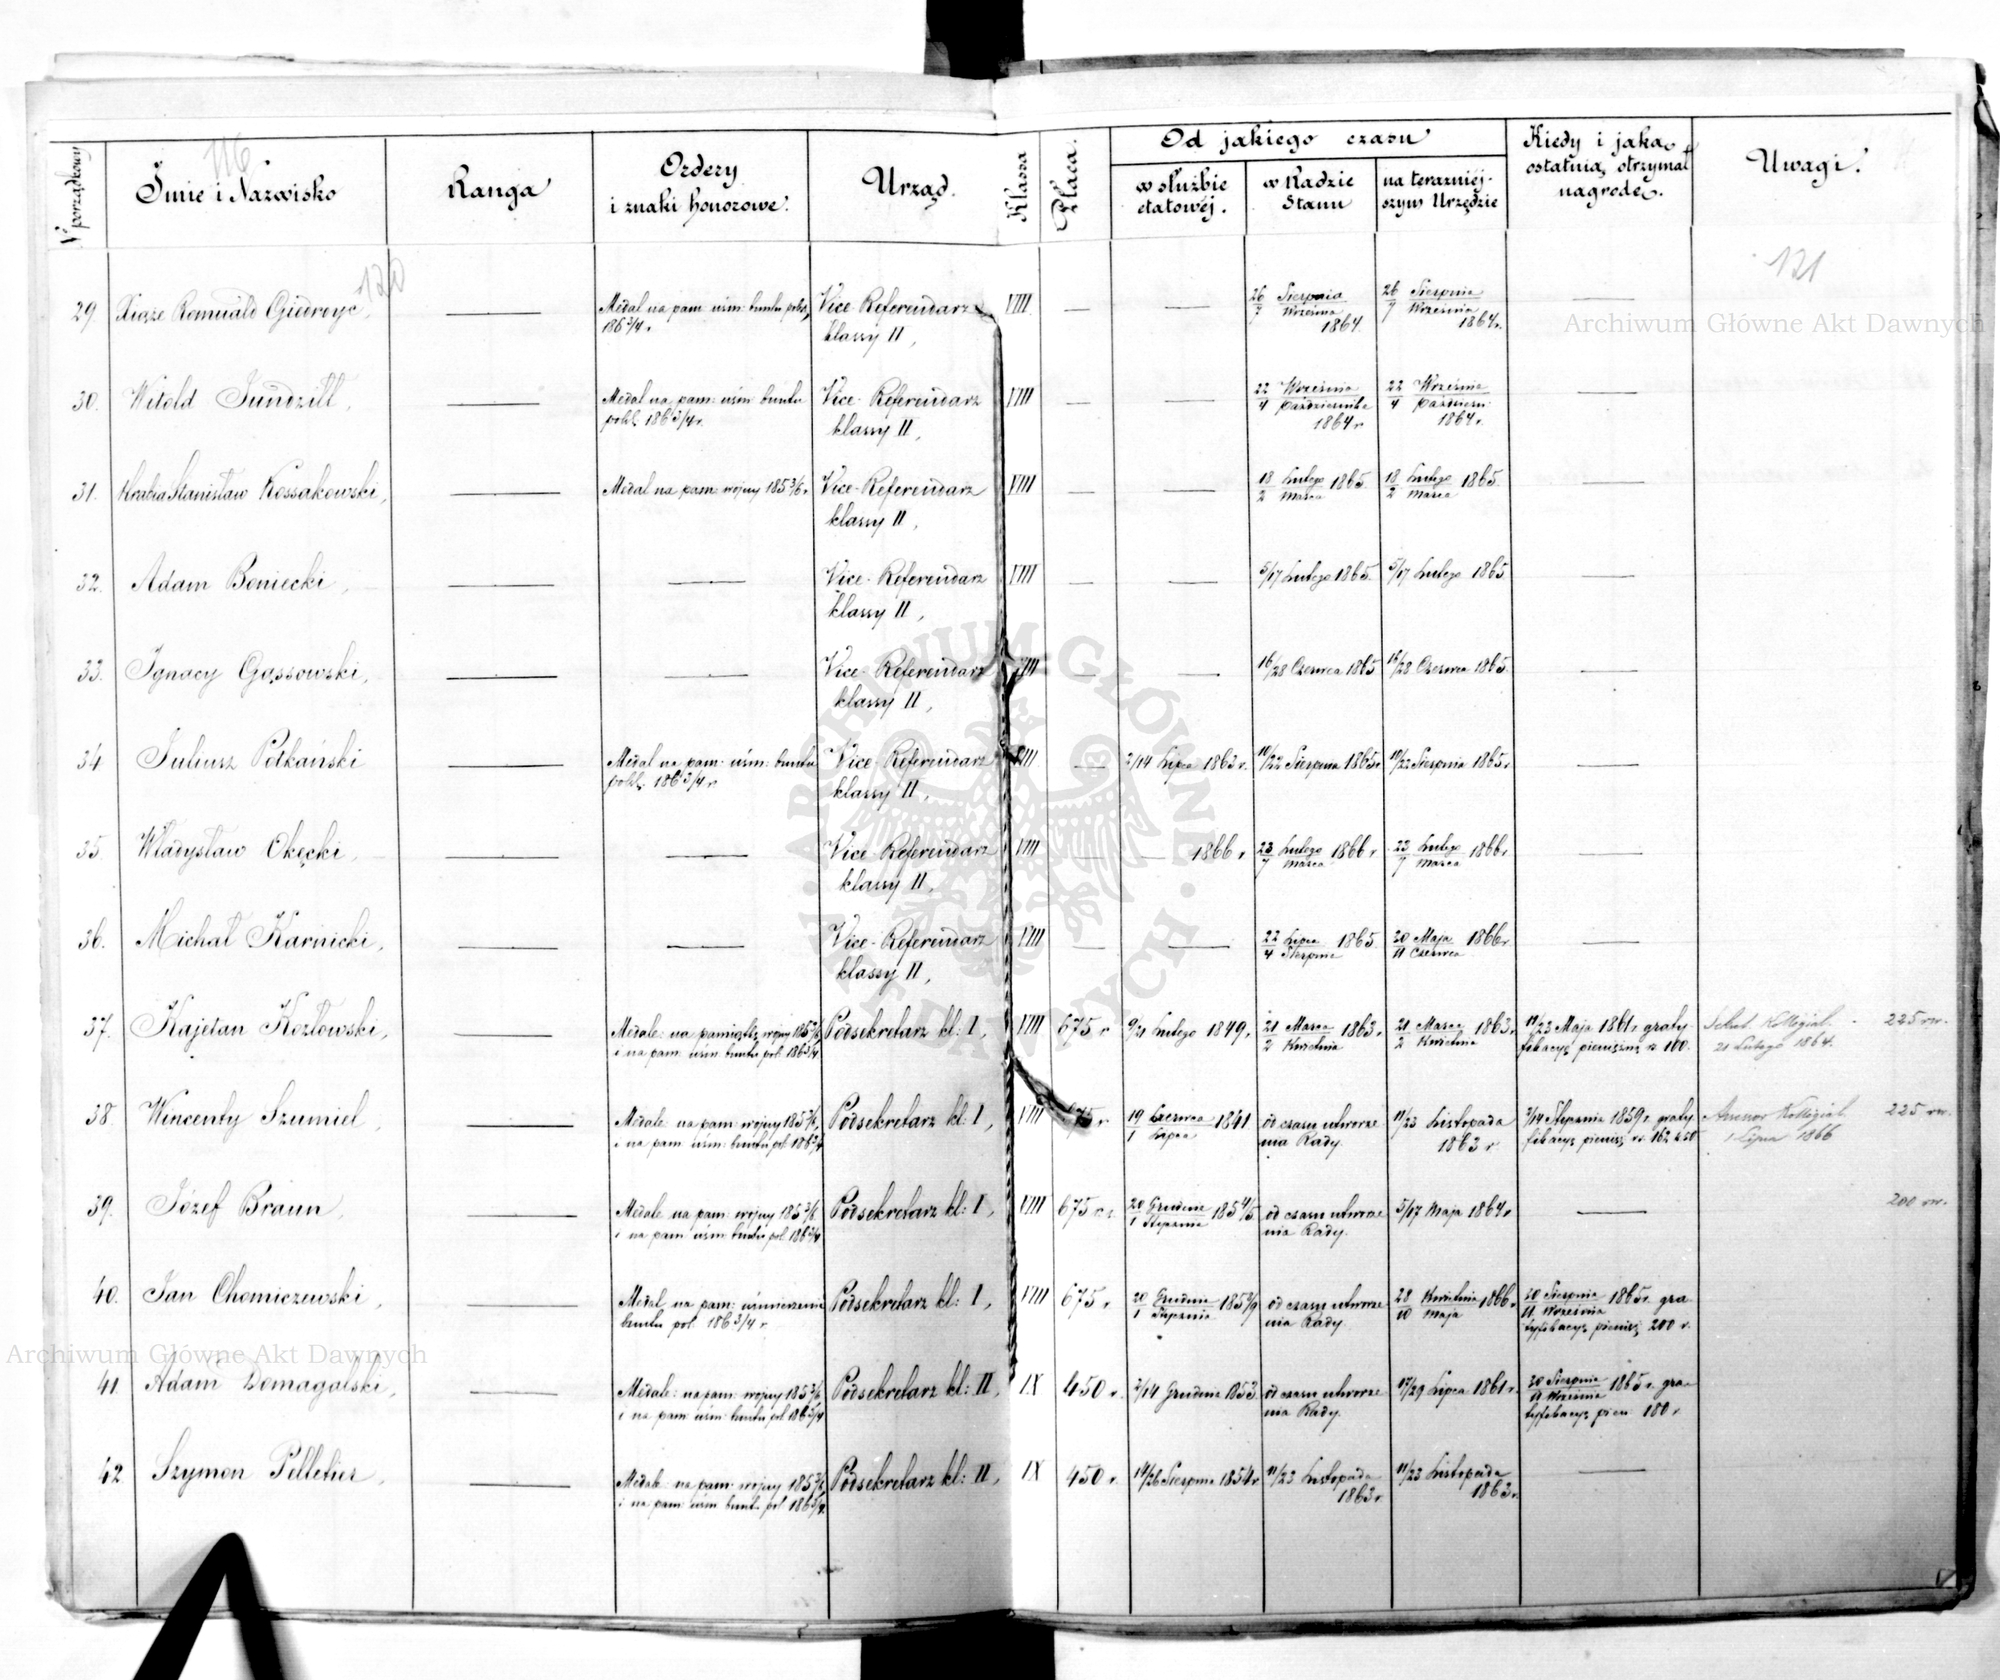 116
N porządkowy
Imie i Nazwisko
Ranga
Ordery
i znaki honorowe.
Urząd.
Klassa
Płaca.
Od jakiego czasu
w służbie
etatowéj.
w Radzie
Stanu
na teraźniéj-
szym Urzędzie
Kiedy i jaką
ostatnią otrzymał
nagrodę.
Uwagi.
120
121
29. Xiąże Romuald Giedroyc,
Medal na pam: uśm: buntu pols,
186 3/4 r.
Vice-Referendarz
klassy II,
VIII
26 Sierpnia
7 Września
1864.
26 Sierpnia
7 Września
1864 r.
30. Witold Jundziłł,
Medal na pam: uśm: buntu
polsk. 186 3/4 r.
Vice-Referendarz
klassy II,
VIII
22 Września
4 Października
1864 r
22 Września
4 Paździer:
1864 r.
31. Hrabia Stanisław Kossakowski,
Medal na pam: wojny 185 3/6 r.
Vice-Referendarz
klassy II,
VIII
18 Lutego 1865.
2 Marca
18 Lutego 1865.
2 Marca
32. Adam Boniecki,
Vice-Referendarz
klassy II,
VIII
5/17 Lutego 1865.
5/17 Lutego 1865
33. Ignacy Gąssowski,
Vice-Referendarz
klassy II,
VIII
16/28 Czerwca 1865
16/28 Czerwca 1865.
34 Juliusz Potkański
Medal na pam: uśm: buntu
polsk: 186 3/4 r.
Vice-Referendarz
klassy II,
VIII
2/14 Lipca 1863 r.
10/22 Sierpnia 1865 r
10/22 Sierpnia 1865 r.
35. Władysław Okęcki,
Vice-Referendarz
klassy II,
VIII
1866 r
23 Lutego 1866 r.
7 Marca
23 Lutego 1866 r.
7 Marca
36. Michał Karnicki,
Vice-Referendarz
klassy II,
VIII
22 Lipca 1865.
4 Sierpnia
20 Maja 1866 r.
11 Czerwca
37. Kajetan Kozłowski,
Medale: na pamiątkę wojny 185 3/6
i na pam: uśm: buntu pol. 186 3/4
Podsekretarz kl: I,
VIII
675 r
9/21 Lutego 1849 r.
21 Marca 1863 r.
2 Kwietnia
21 Marca 1863 r.
2 Kwietnia
11/23 Maja 1861 r. graty-
fikacyę pieniężną rs 100.
Sekret. Kollegial.
21 Lutego 1864.
225 rsr.
38. Wincenty Szumiel,
Medale: na pam: wojny 185 3/6,
i na pam: uśm: buntu pol. 186 3/4
Podsekretarz kl: I,
VIII
675 r
19 Czerwca 1841
1 Lipca
od czasu utworze
nia Rady.
11/23 Listopada
1863 r.
2/14 Stycznia 1859 r. graty
fikacyę pienięż. rs. 162 k 50
Assesor Kollegial.
1 Lipca 1866
225 rsr.
39. Józef Braun,
Medale: na pam: wojny 185 3/6
i na pam: uśm: buntu pol. 186 3/4
Podsekretarz kl: I,
VIII
675 r.
20 Grudnia 185 4/5
1 Stycznia
od czasu utworze
nia Rady.
5/17 Maja 1864 r
200 rsr.
40. Jan Chomiczewski,
Medal na pam: uśmierzenia
buntu pol. 186 3/4 r
Podsekretarz kl: I,
VIII
675 r
20 Grudnia 185 8/9
1 Stycznia
od czasu utworze
nia Rady.
28 Kwietnia 1866 r
10 Maja
30 Sierpnia 1865 r. gra
11 Września
tyfikacyę pienięż. 200 r.
41. Adam Domagalski,
Medale: na pam: wojny 185 3/6
i na pam: uśm: buntu pol 186 3/4
Podsekretarz kl: II,
IX
450 r.
2/14 Grudnia 1853.
od czasu utworze
nia Rady.
17/29 Lipca 1861 r.
30 Sierpnia 1865 r. gra-
11 Września
tyfikacyę pien: 180 r
42 Szymon Pelletier,
Medale: na pam: wojny 185 3/6
i na pam: uśm: buntu pol. 186 3/4.
Podsekretarz kl: II,
IX
450 r.
14/26 Sierpnia 1854 r.
11/23 Listopada
1863 r.
11/23 Listopada
1863 r.
Archiwum Główne Akt Dawnych
Archiwum Główne Akt Dawnych
ARCHIWUM GŁÓWNE AKT DAWNYCH